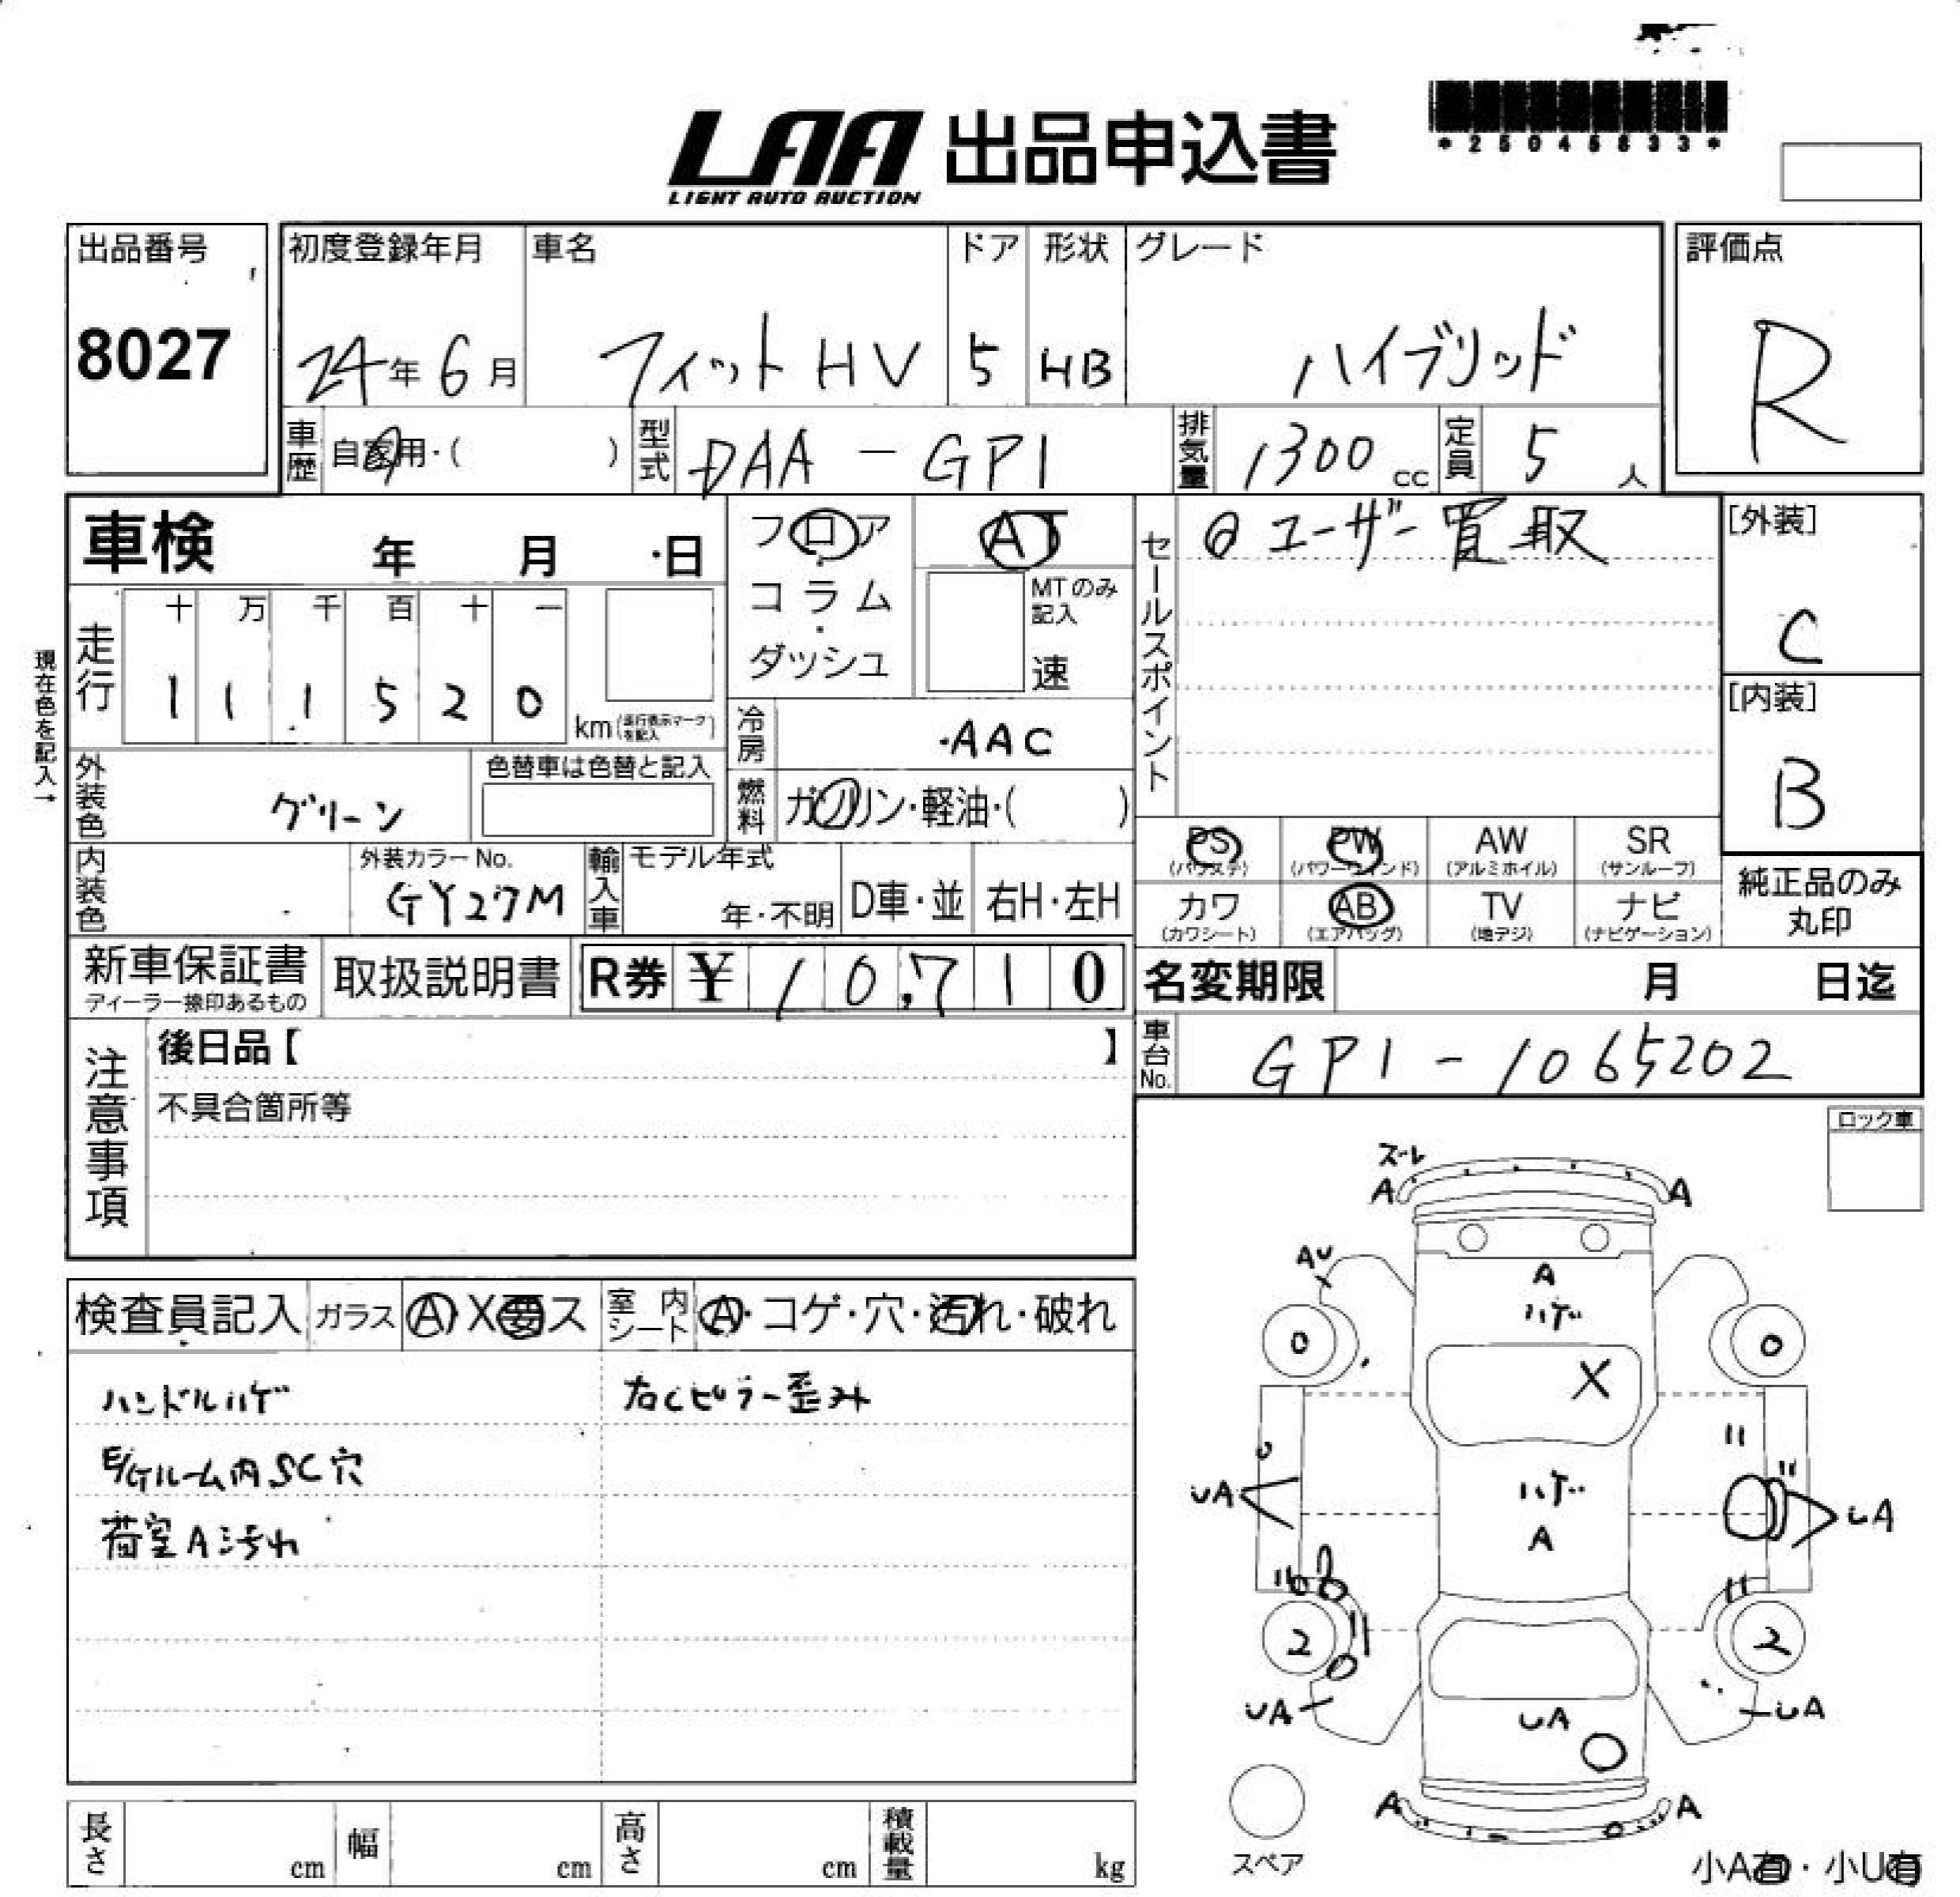 LAA 出品申込書
LIGHT AUTO AUCTION
出品番号
8027
初度登録年月
24年6月
車名
フィットHV
ドア
5
形状
HB
グレード
ハイブリッド
評価点
R
車歴
自家用・( )
型式
DAA-GP1
排気量
1300cc
定員
5人
車検 年 月 日
フロア
コラム
ダッシュ
AT
MTのみ
記入
速
セールスポイント
ユーザー買取
[外装]
C
[内装]
B
現在色を記入→
走行
十 万 千 百 十 一
1 1 1 5 2 0
km(走行表示マークを記入)
冷房
AAC
燃料
ガソリン・軽油・( )
外装色
グリーン
色替車は色替と記入
内装色
外装カラーNo.
GY27M
輸入車
モデル年式
年・不明
D車・並
右H・左H
PS
(パワステ)
PW
(パワーウインド)
AW
(アルミホイル)
SR
(サンルーフ)
カワ
(カワシート)
AB
(エアバッグ)
TV
(地デジ)
ナビ
(ナビゲーション)
純正品のみ
丸印
新車保証書
ディーラー捺印あるもの
取扱説明書
R券 ¥10,710
名変期限 月 日迄
車台No.
GP1-1065202
注意事項
後日品【 】
不具合箇所等
ロック車
検査員記入
ガラス
A・X要ス
室内シート
A・コゲ・穴・汚れ・破れ
ハンドルハゲ
E/Gルーム内SC穴
荷室A汚れ
右Cピラー歪み
ズレ
A
A
AU
A
ハゲ
0
0
X
UA
ハゲ
A
UA
2
2
UA
UA
UA
A
A
スペア
小A有・小U有
長さ cm
幅 cm
高さ cm
積載量 kg